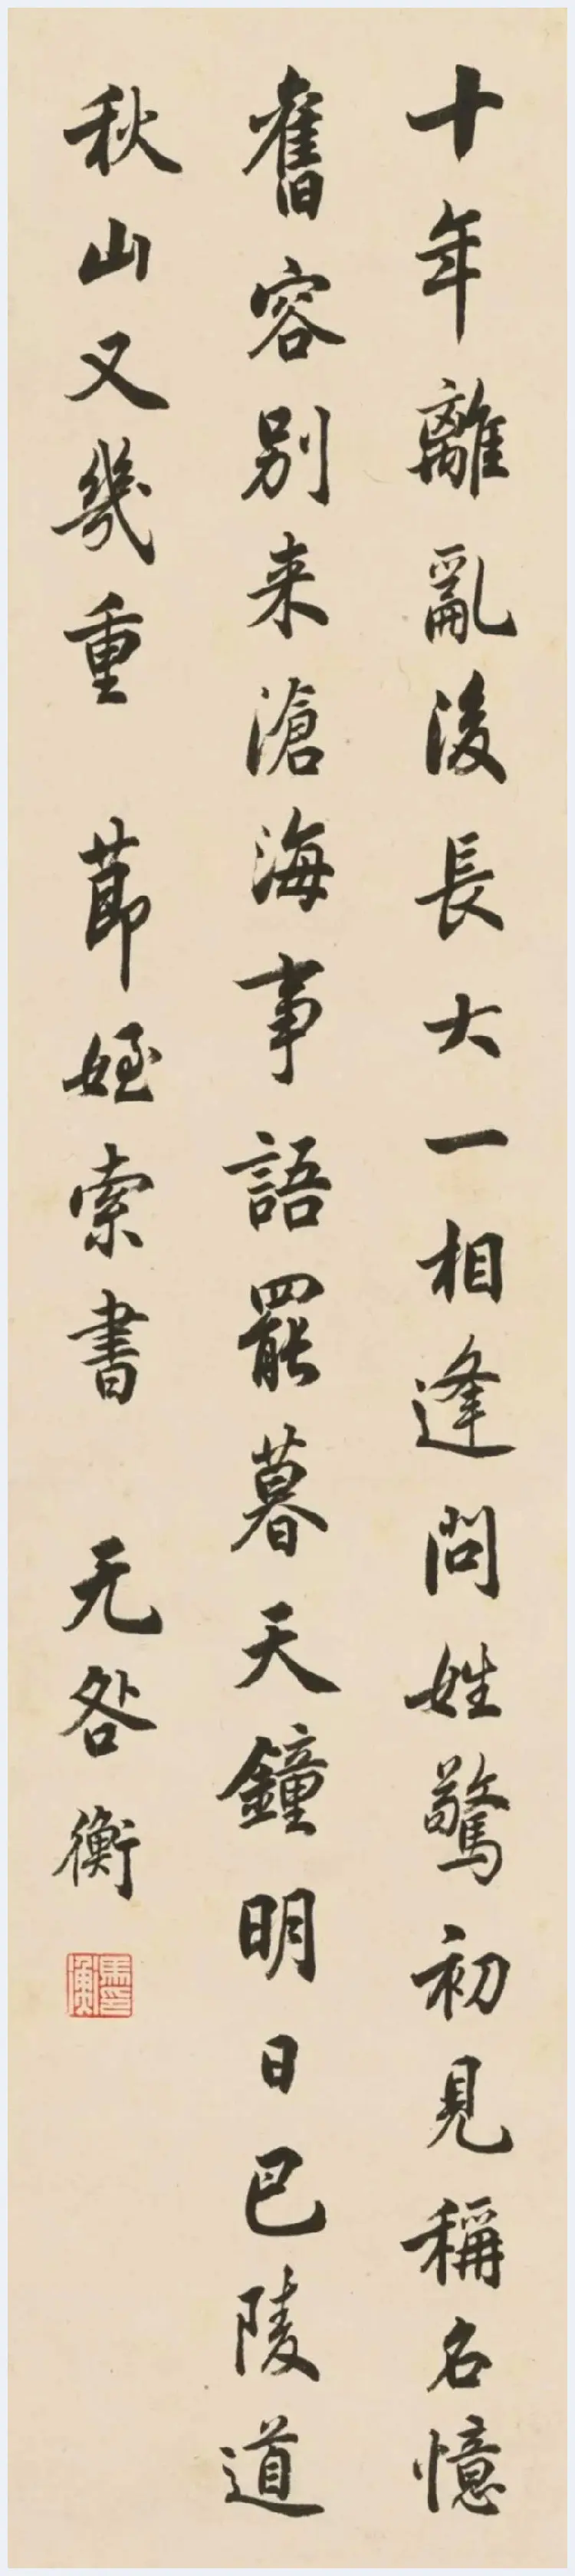 十年離亂後長大一相逢問姓驚初見稱名憶
舊容別来滄海事語罷暮天鐘明日巴陵道
秋山又幾重 莭姪索書 无咎衡
馬衡